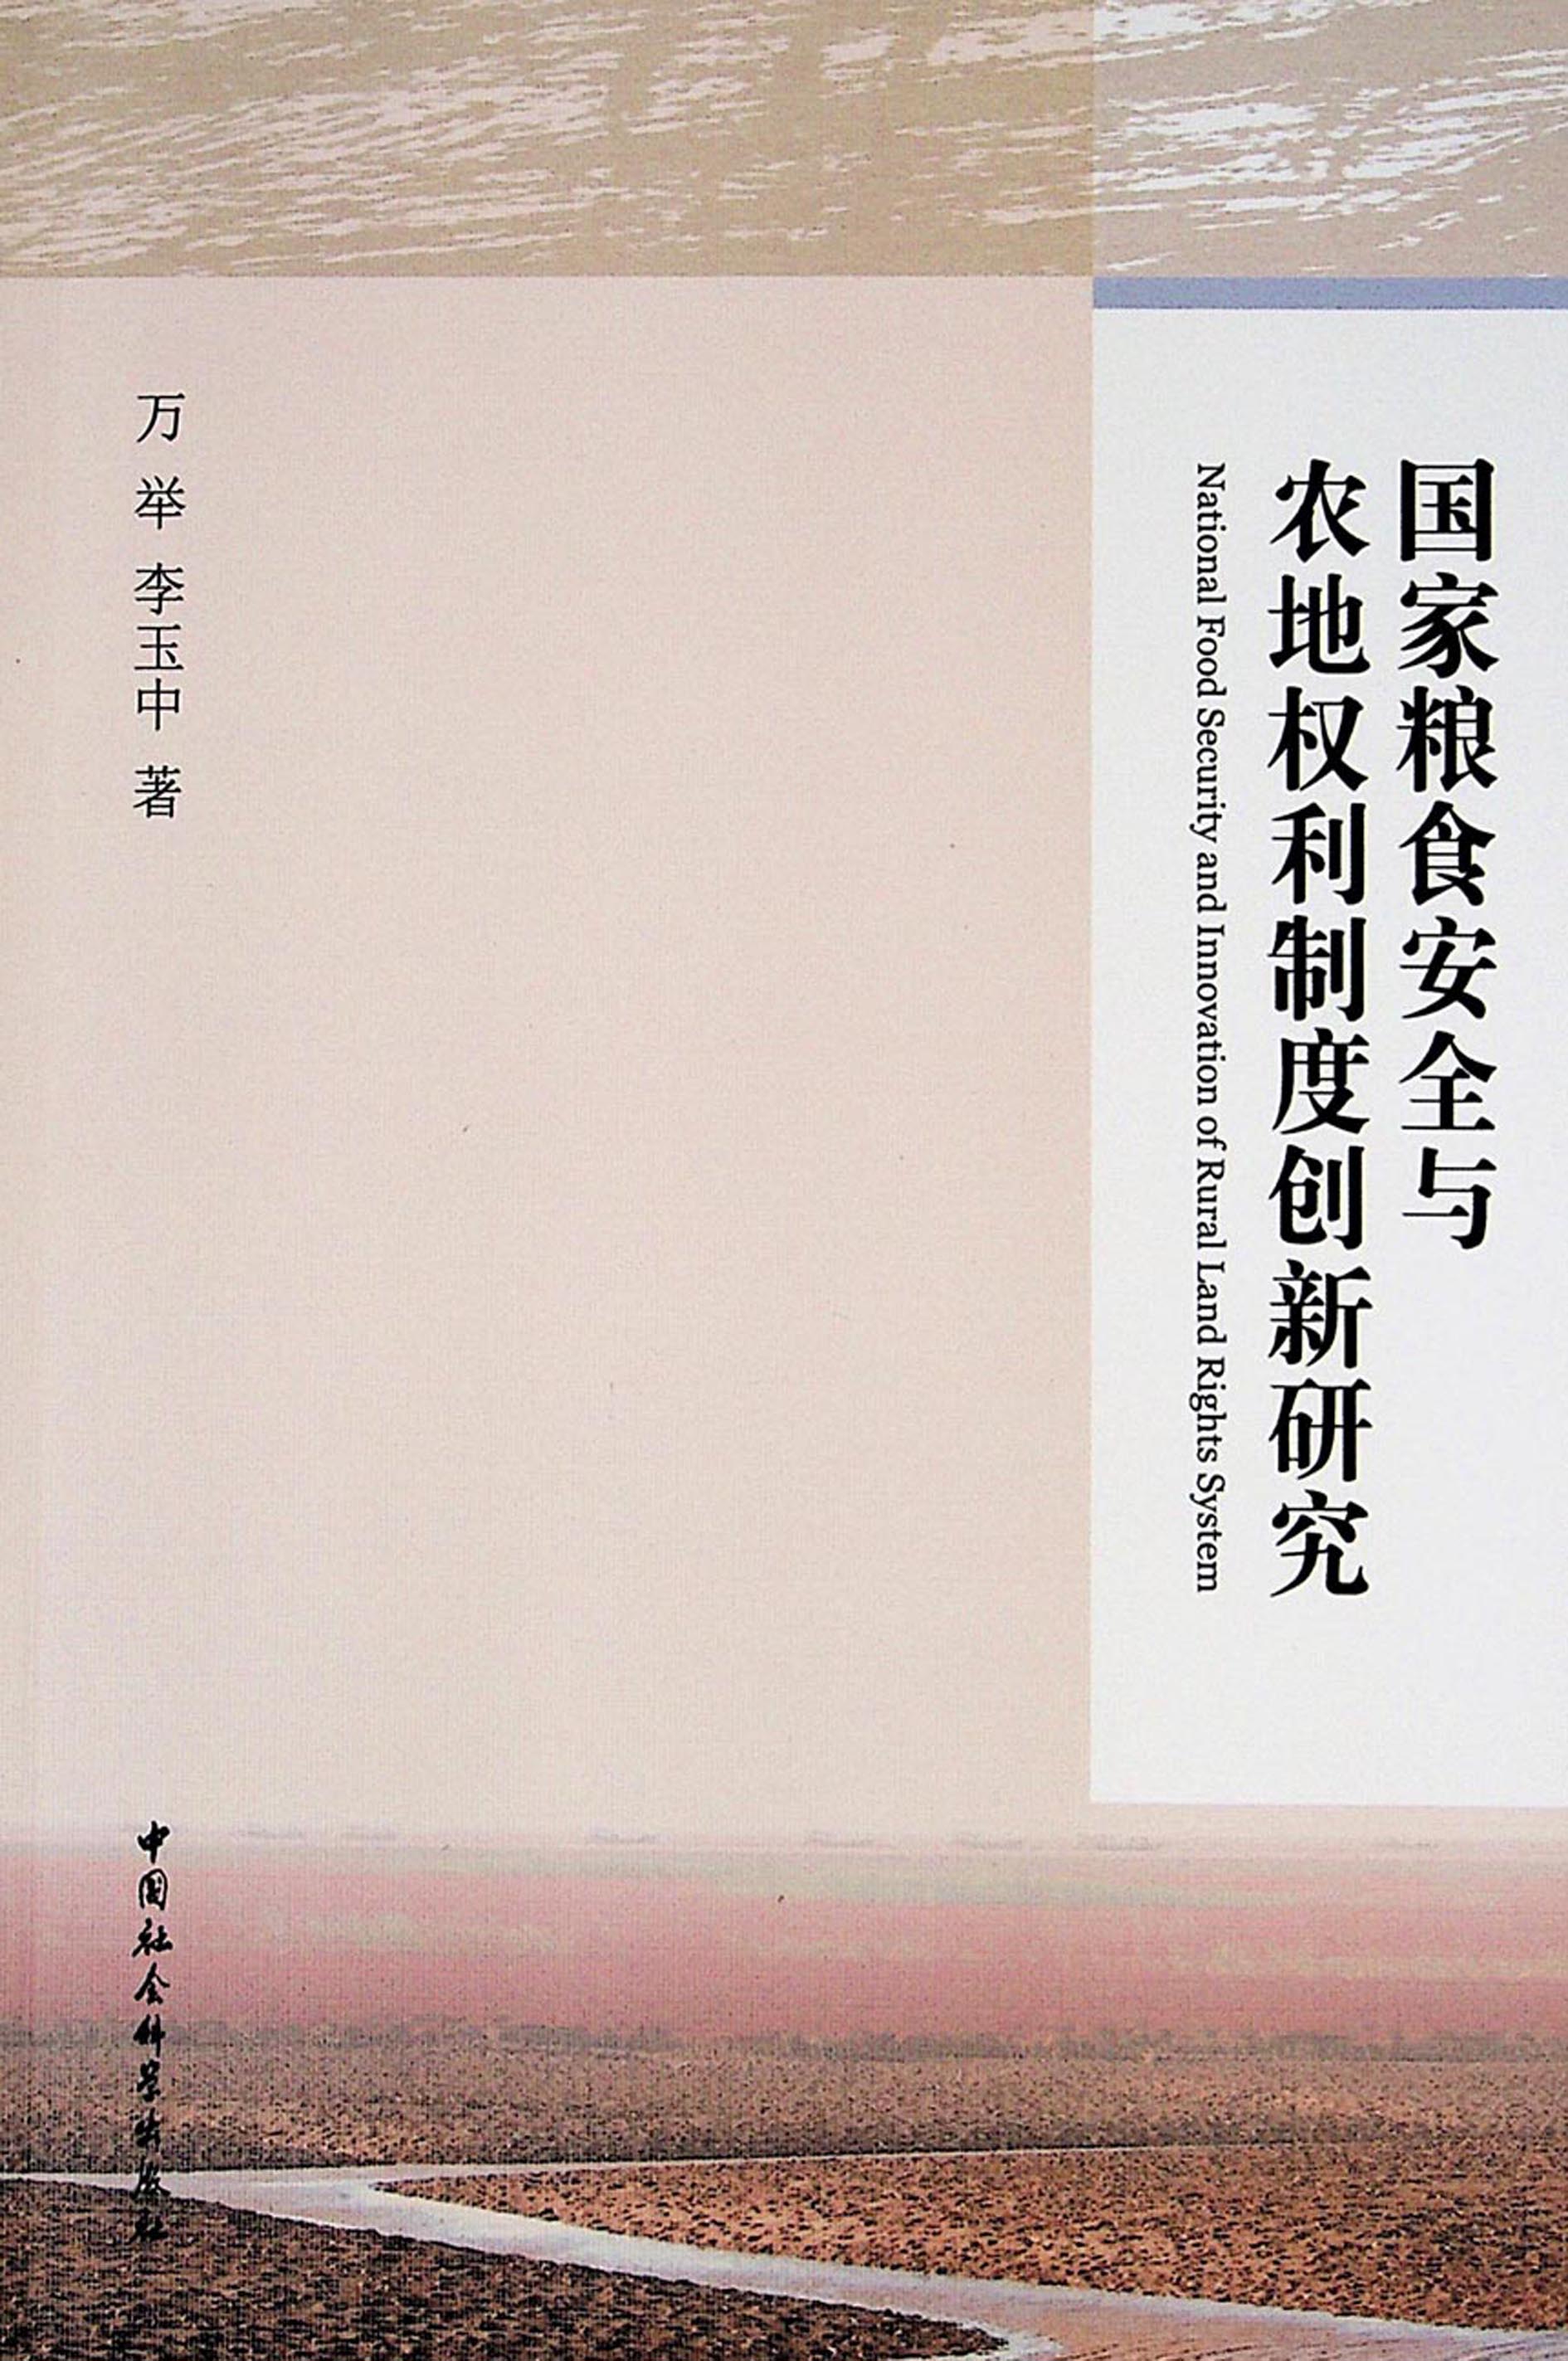 国家粮食安全与
农地权利制度创新研究
National Food Security and Innovation of Rural Land Rights System
万 举 李玉中 著
中国社会科学出版社